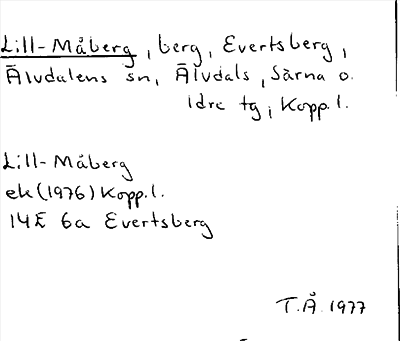 Lill-Måberg, berg, Evertsberg,
Älvdalens sn, Älvdals, Särna o.
Idre tg, Kopp.l.
Lill-Måberg
ek (1976) Kopp.l.
14E 6a Evertsberg
T.Å. 1977